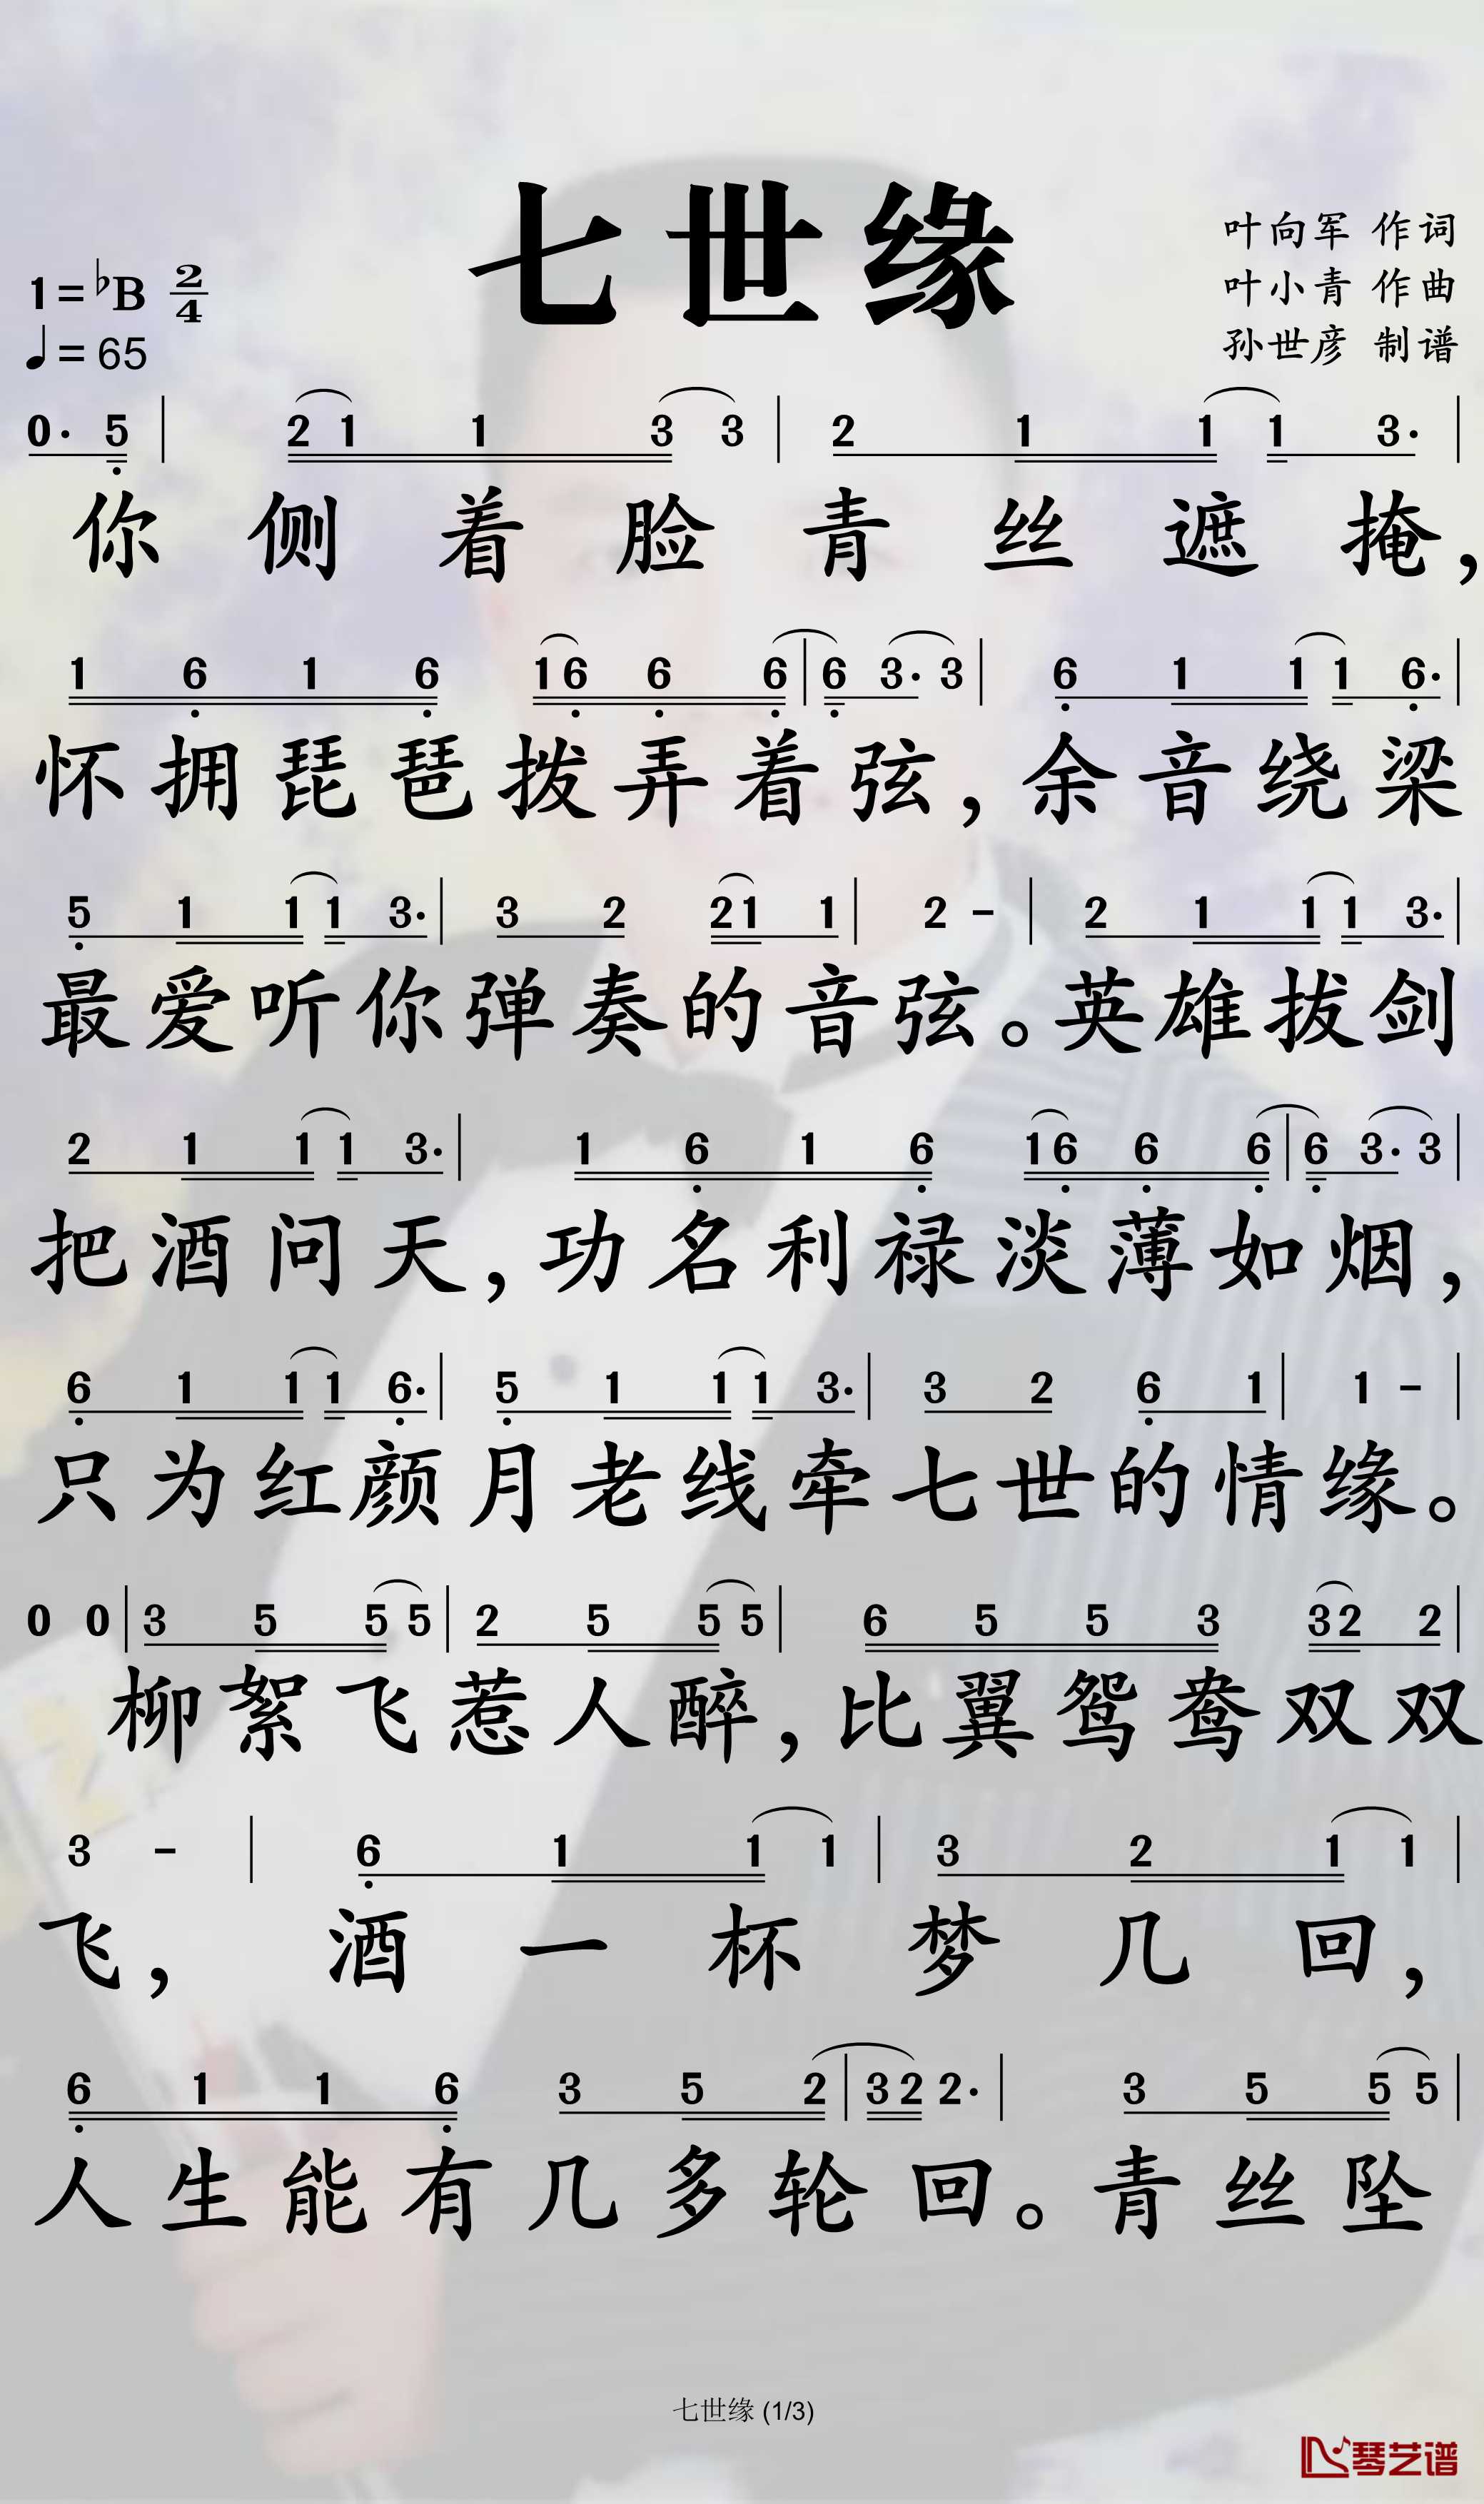 七世缘
叶向军 作词
叶小青 作曲
孙世彦 制谱
1=♭B 2/4
♩=65
0· 5 | 2 1 1 3 3 | 2 1 1 1 3· |
你侧着脸青丝遮掩，
1 6 1 6 16 6 6 | 6 3· 3 | 6 1 1 1 6· |
怀拥琵琶拨弄着弦，余音绕梁
5 1 1 1 3· | 3 2 21 1 | 2 - | 2 1 1 1 3· |
最爱听你弹奏的音弦。英雄拔剑
2 1 1 1 3· | 1 6 1 6 16 6 6 | 6 3· 3 |
把酒问天，功名利禄淡薄如烟，
6 1 1 1 6· | 5 1 1 1 3· | 3 2 6 1 | 1 - |
只为红颜月老线牵七世的情缘。
0 0 | 3 5 5 5 | 2 5 5 5 | 6 5 5 3 32 2 |
柳絮飞惹人醉，比翼鸳鸯双双
3 - | 6 1 1 1 | 3 2 1 1 |
飞，酒一杯梦几回，
6 1 1 6 3 5 2 | 3 2 2· | 3 5 5 5 |
人生能有几多轮回。青丝坠
七世缘 (1/3)
琴艺谱